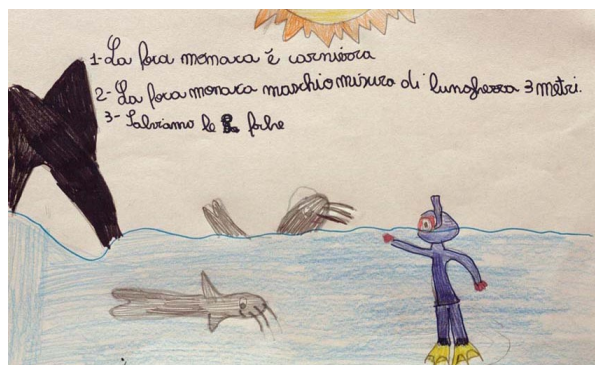 1-La foca monaca è carnivora
2-La foca monaca maschio misura di lunghezza 3 metri.
3-Salviamo le foche